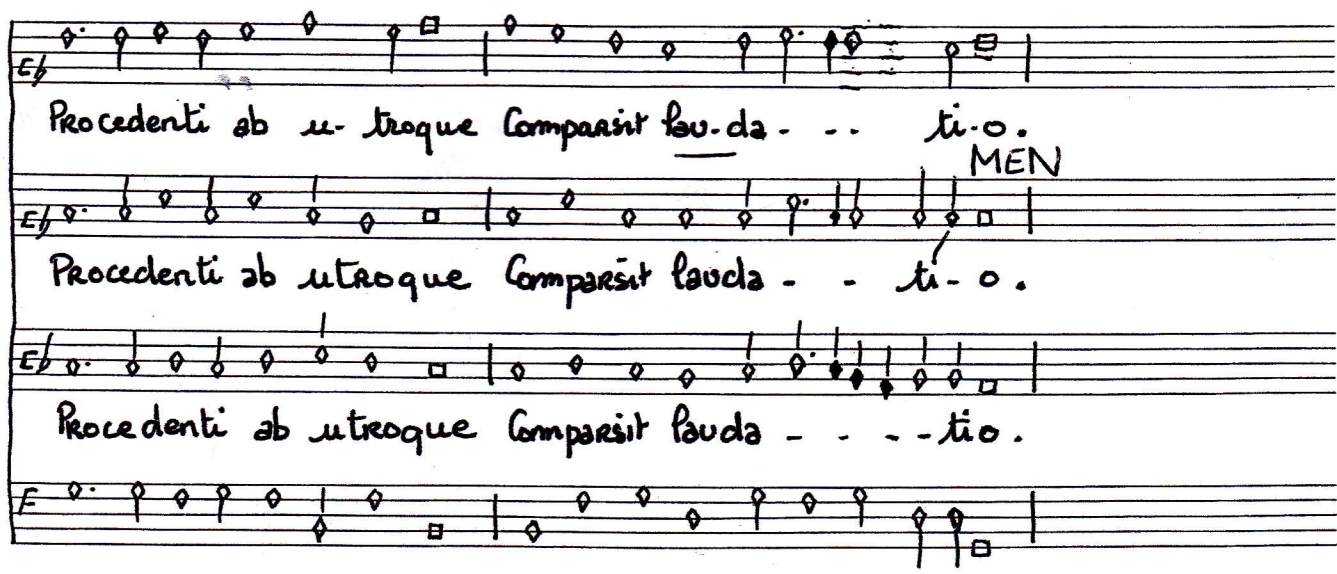 Eb
Procedenti ab u- troque Comparsit lau-da - - - ti-o.
MEN
Eb
Procedenti ab utroque Comparsit lauda - - ti-o.
Eb
Procedenti ab utroque Comparsit lauda - - - - tio.
F